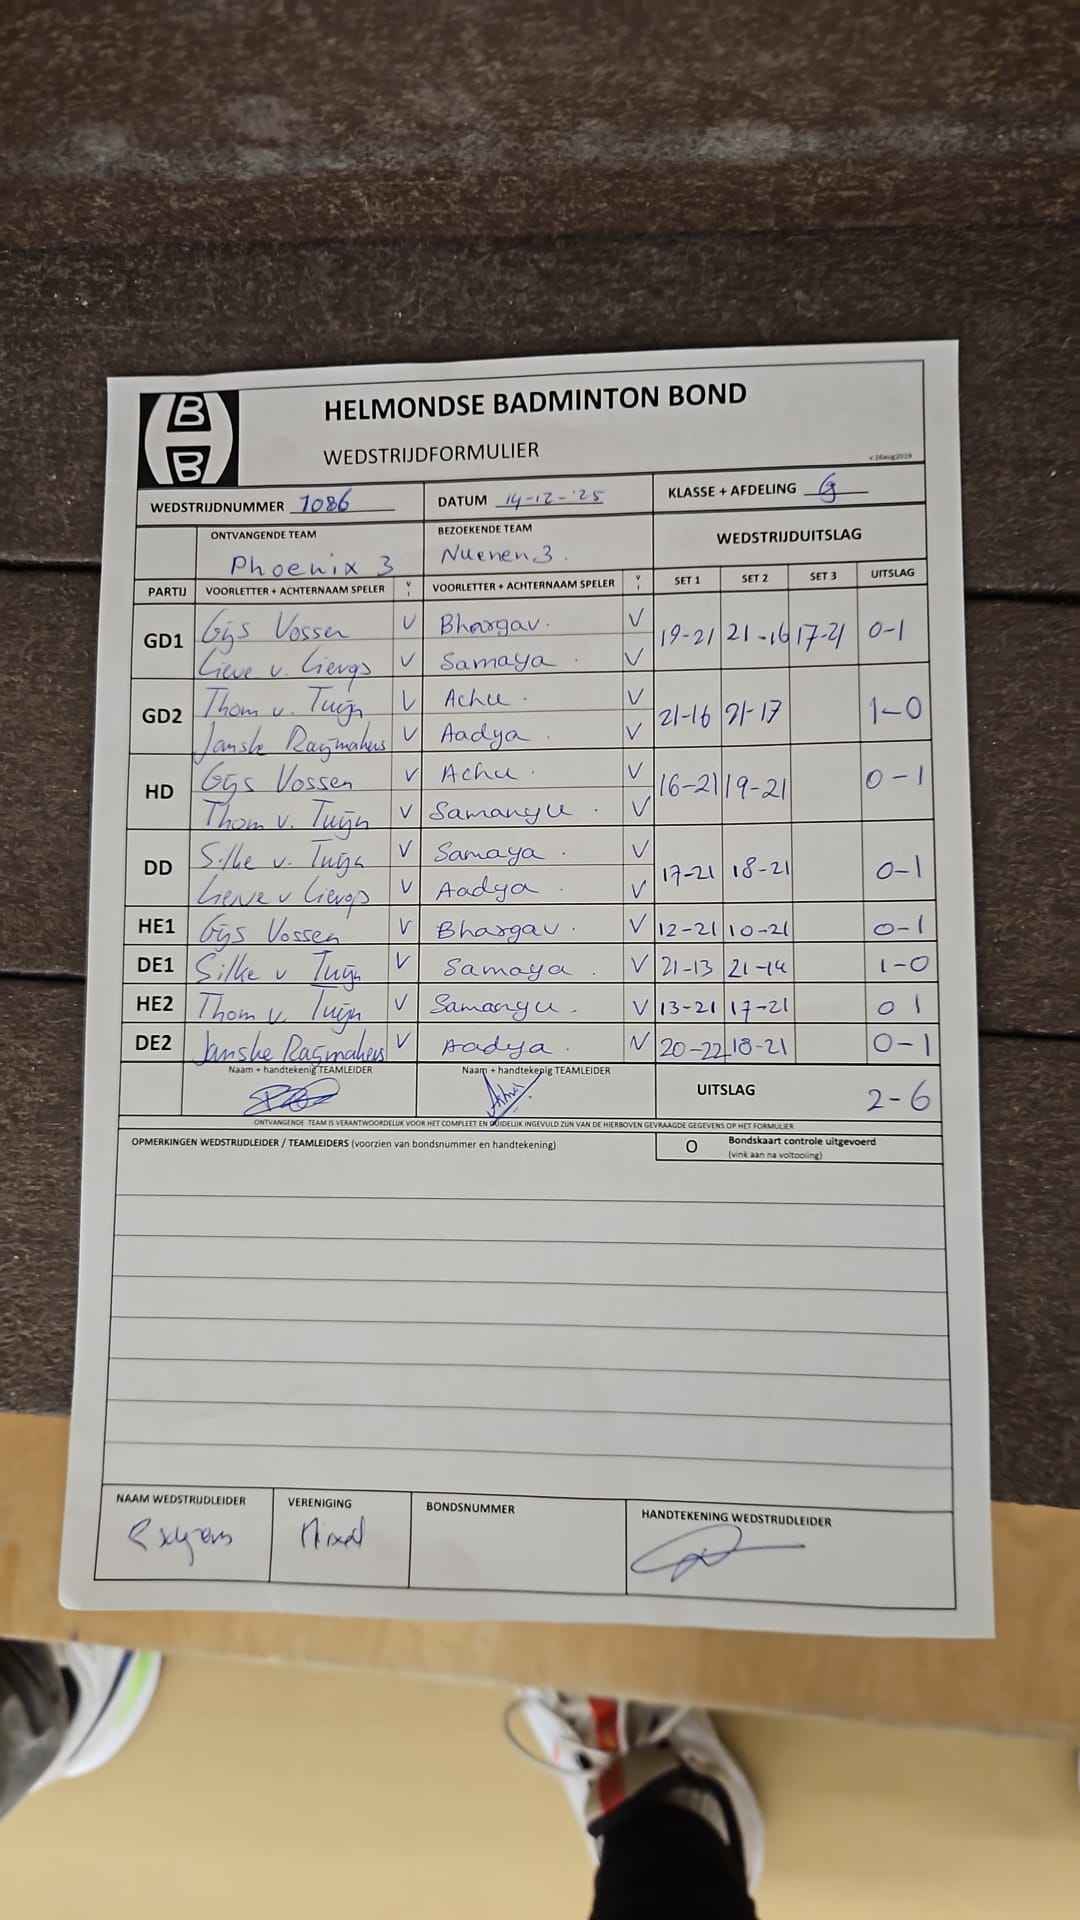 HELMONDSE BADMINTON BOND
WEDSTRIJDFORMULIER
v.16aug2019
WEDSTRIJDNUMMER 1086 DATUM 14-12-'25 KLASSE + AFDELING G
ONTVANGENDE TEAM BEZOEKENDE TEAM WEDSTRIJDUITSLAG
Phoenix 3 Nuenen 3.
PARTIJ VOORLETTER + ACHTERNAAM SPELER V VOORLETTER + ACHTERNAAM SPELER V SET 1 SET 2 SET 3 UITSLAG
GD1 Gijs Vossen V Bhargav. V 19-21 21-16 17-21 0-1
Lieve v. Lierop V Samaya. V
GD2 Thom v. Tuijn V Achu. V 21-16 21-17 1-0
Janske Raijmakers V Aadya. V
HD Gijs Vossen V Achu. V 16-21 19-21 0-1
Thom v. Tuijn V Samangyu. V
DD Silke v. Tuijn V Samaya. V 17-21 18-21 0-1
Lieve v Lierop V Aadya. V
HE1 Gijs Vossen V Bhargav. V 12-21 10-21 0-1
DE1 Silke v Tuijn V Samaya. V 21-13 21-14 1-0
HE2 Thom v. Tuijn V Samangyu. V 13-21 17-21 0 1
DE2 Janske Raijmakers V Aadya. V 20-22 18-21 0-1
Naam + handtekenig TEAMLEIDER Naam + handtekenig TEAMLEIDER UITSLAG 2-6
ONTVANGENDE TEAM IS VERANTWOORDELIJK VOOR HET COMPLEET EN DUIDELIJK INGEVULD ZIJN VAN DE HIERBOVEN GEVRAAGDE GEGEVENS OP HET FORMULIER
OPMERKINGEN WEDSTRIJDLEIDER / TEAMLEIDERS (voorzien van bondsnummer en handtekening) O Bondskaart controle uitgevoerd
(vink aan na voltooiing)
NAAM WEDSTRIJDLEIDER VERENIGING BONDSNUMMER HANDTEKENING WEDSTRIJDLEIDER
Mixed